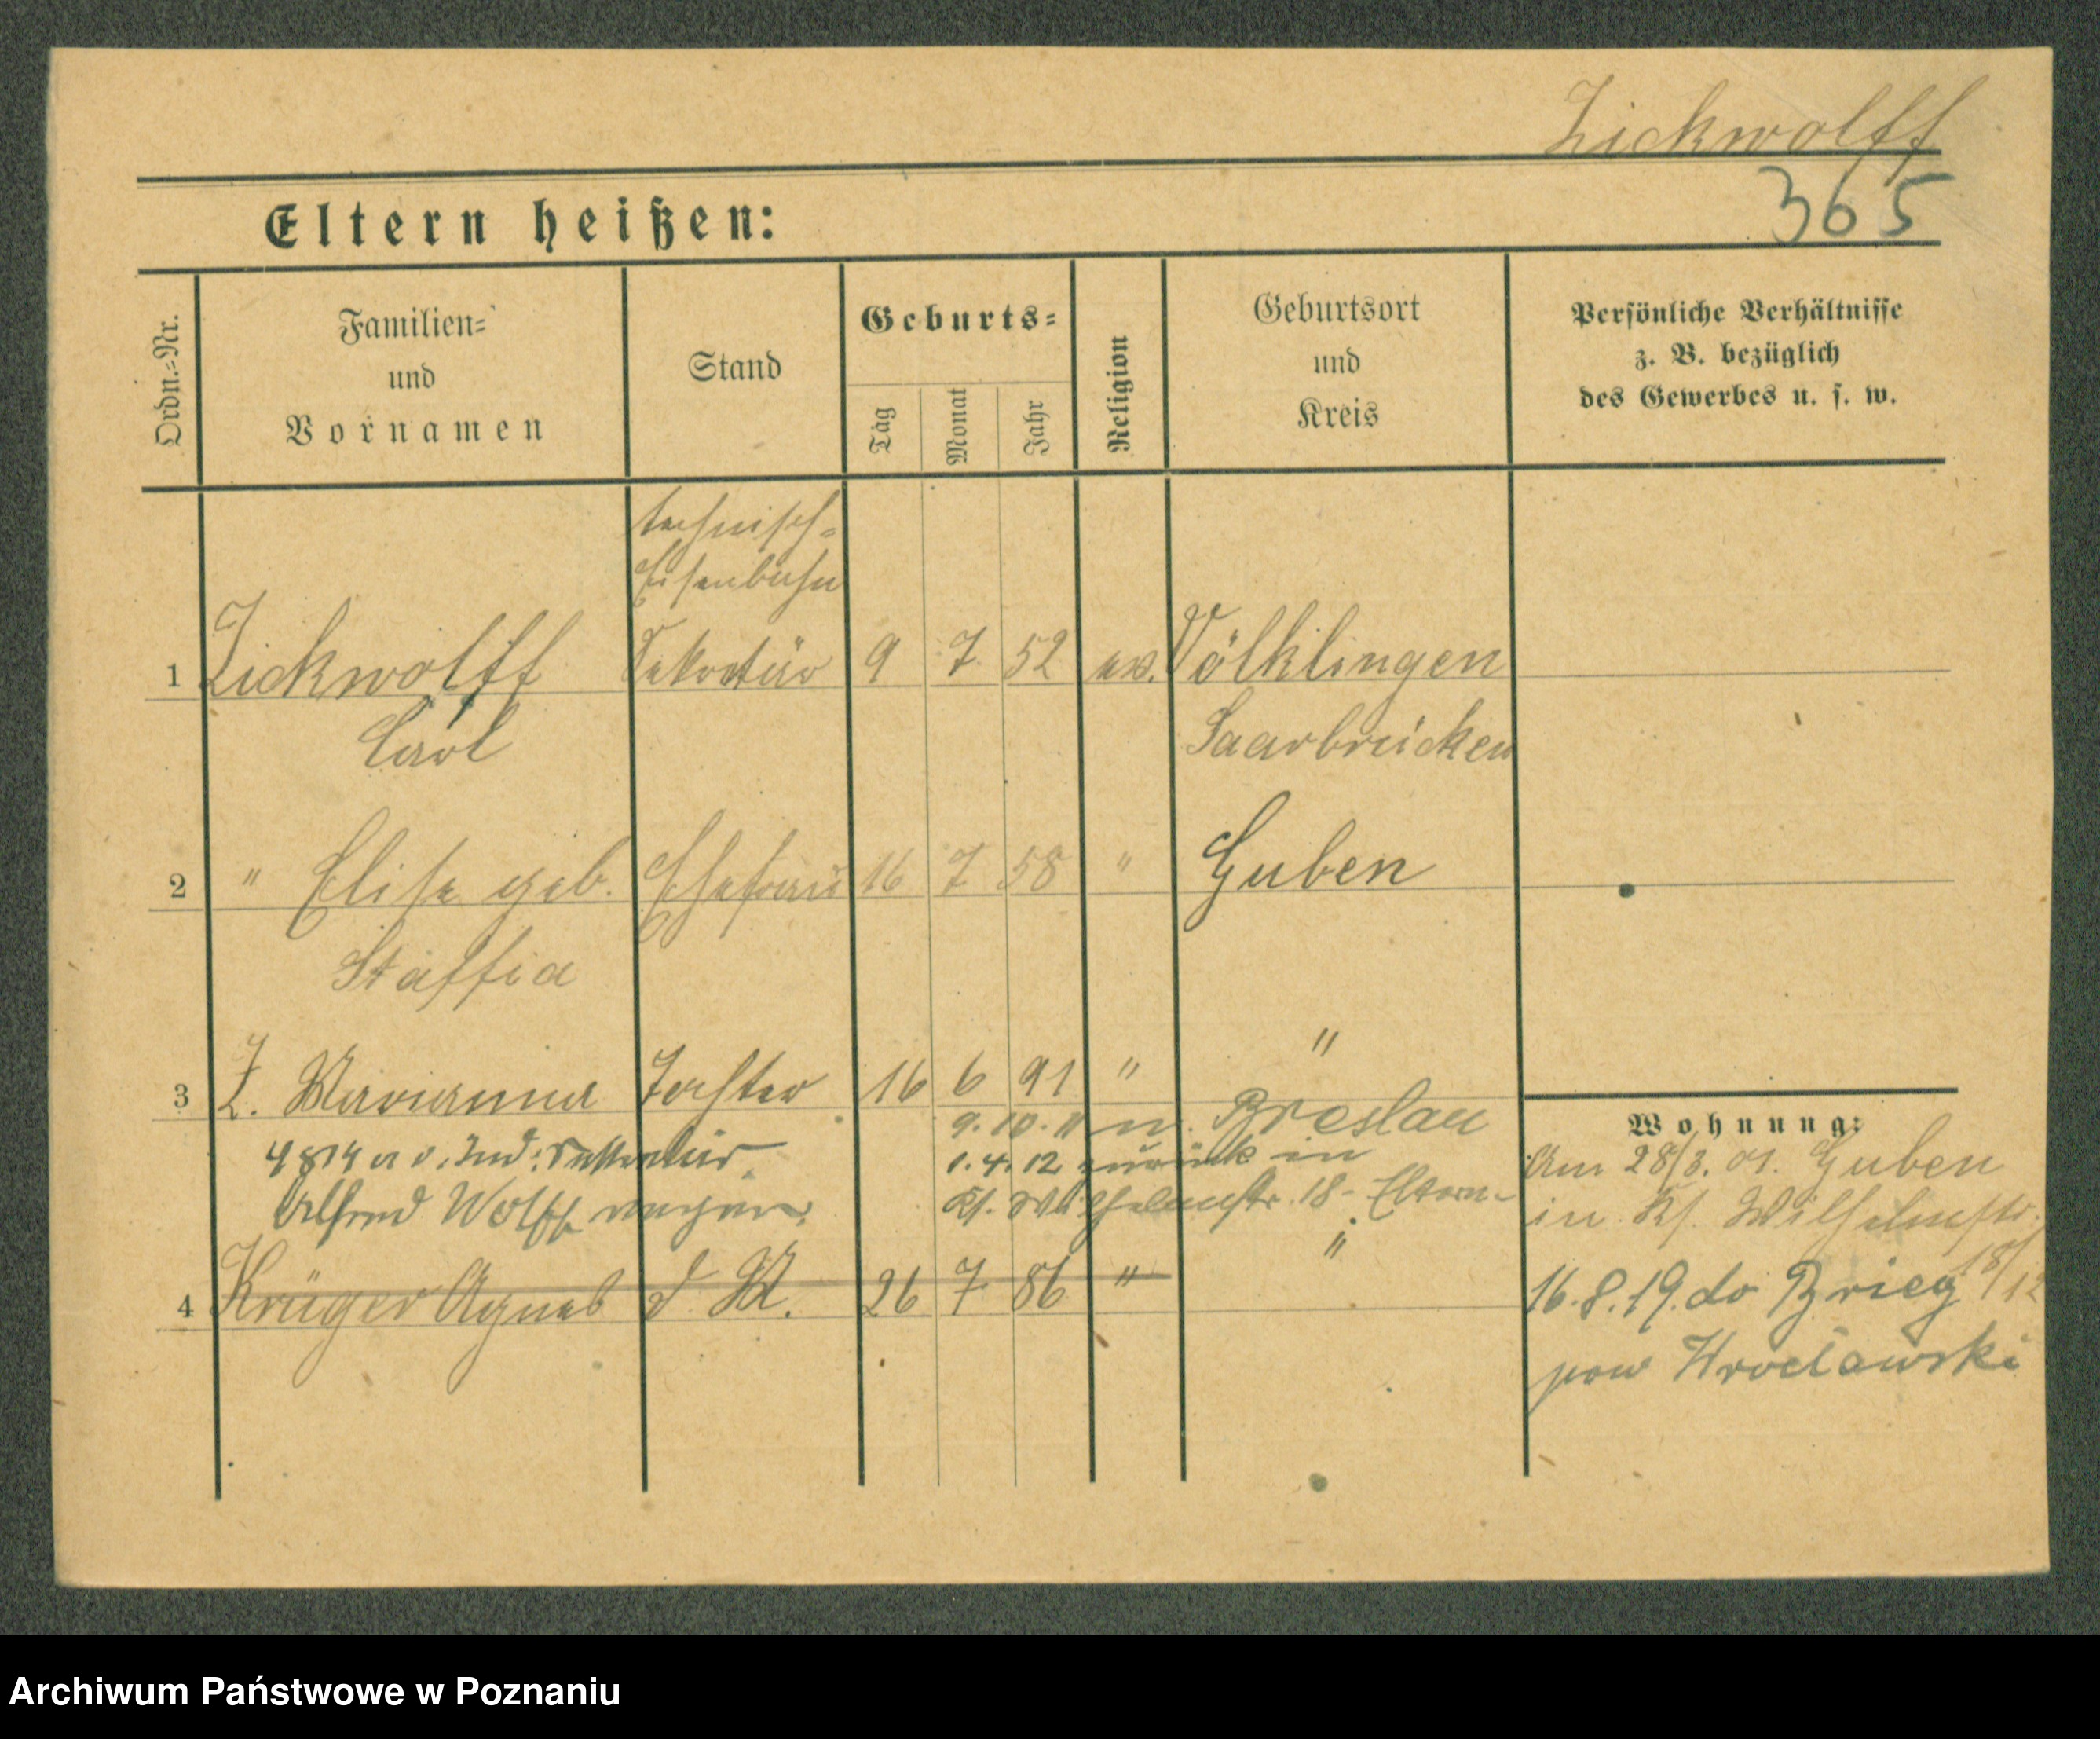 Zickwolff
365
Eltern heißen:
Ordn.-Nr.
Familien-
und
Vornamen
Stand
Geburts-
Tag
Monat
Jahr
Religion
Geburtsort
und
Kreis
Persönliche Verhältnisse
z. B. bezüglich
des Gewerbes u. s. w.
technisch-
Eisenbahn
1 Zickwolff Sekretär 9 7 52 ev. Völklingen
Carl Saarbrücken
2 " Elise geb. Ehefrau 16 7 58 " Guben
Staffia
"
3 Z. Marianna Tochter 16 6 91 "
9.10.11 n. Breslau
1.4.12 zurück in
Ks. Wilhelmstr. 18 - Eltern-
Alfred Wolff
"
4 Krüger Agnes d. M. 26 7 86 "
Wohnung:
Am 28/3. 01. Guben
in Ks. Wilhelmstr.
18/12
16.8.19. do Brieg
pow Wrocławski
Archiwum Państwowe w Poznaniu